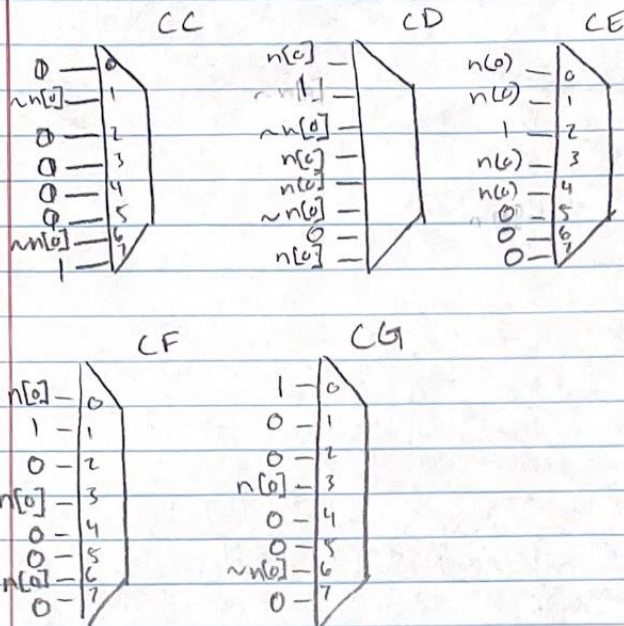 CC
0 0
~n[0] 1
0 2
0 3
0 4
0 5
~n[0] 6
1 7
CD
n[0]
~n[0]
n[0]
n[0]
~n[0]
0
n[0]
CE
n(0) 0
n(0) 1
1 2
n(0) 3
n(0) 4
0 5
0 6
0 7
CF
n[0] 0
1 1
0 2
n[0] 3
0 4
0 5
n[0] 6
0 7
CG
1 0
0 1
0 2
n[0] 3
0 4
0 5
~n[0] 6
0 7